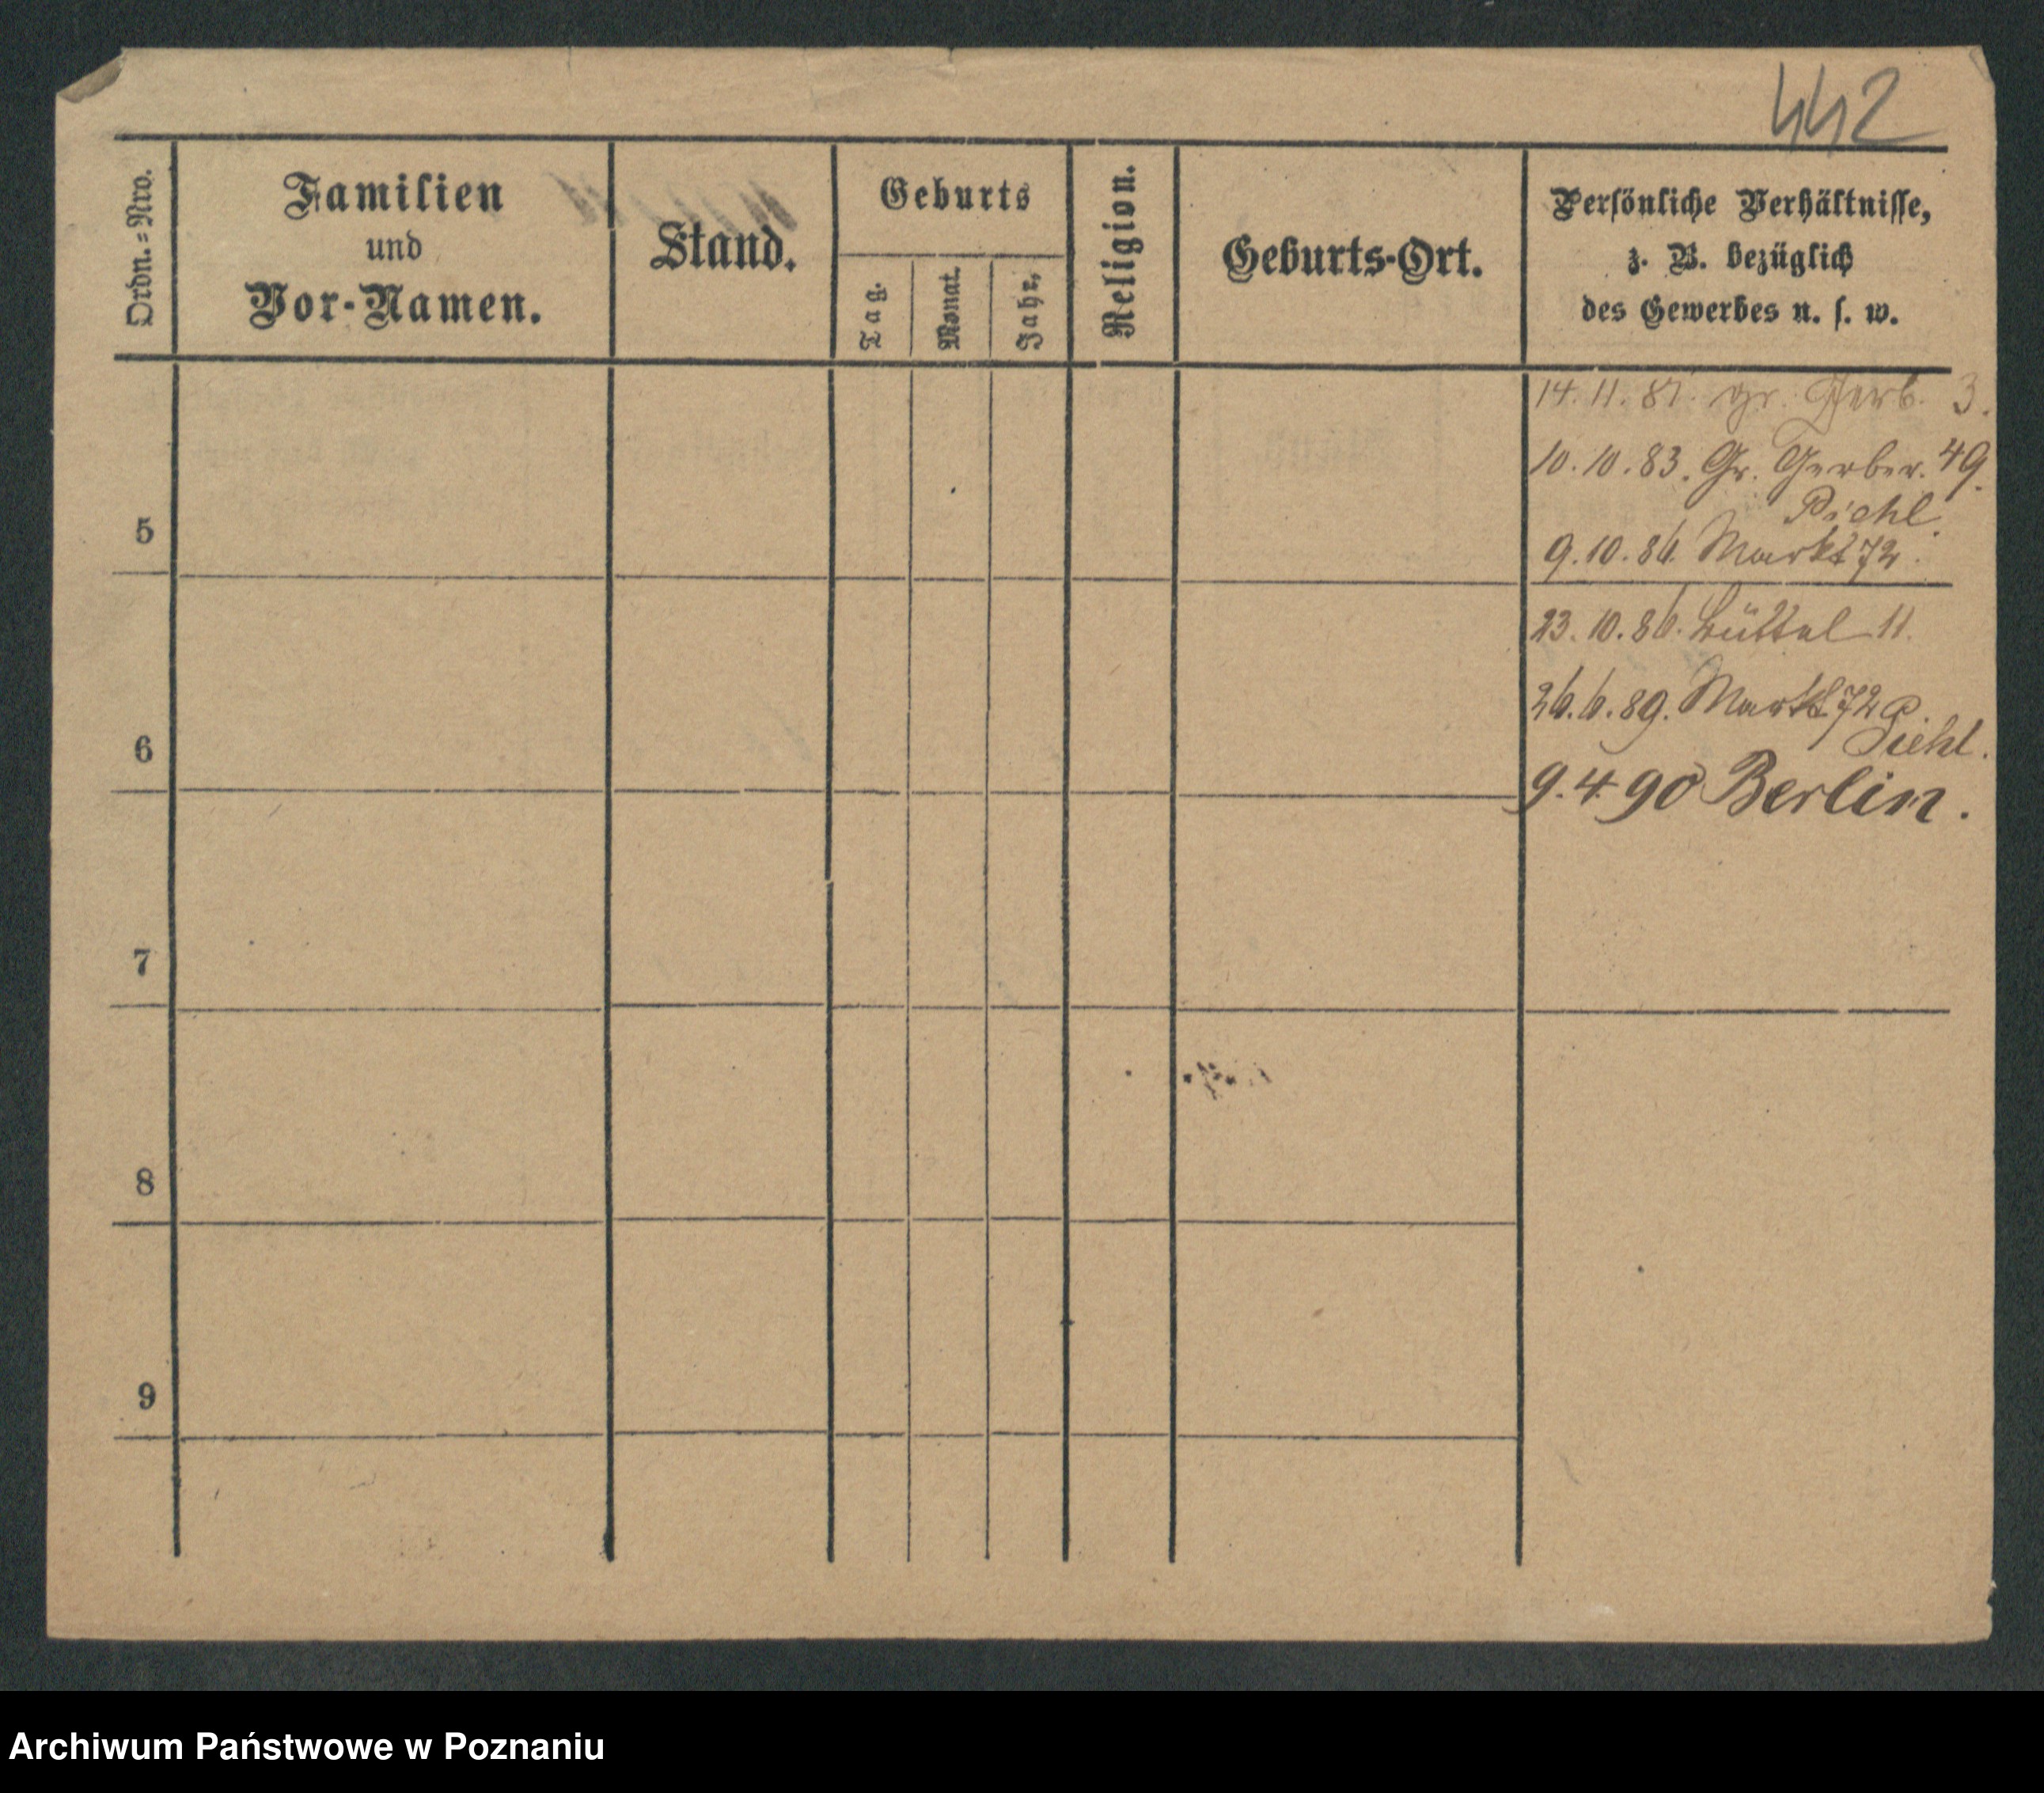 442
Ordn.=Nro.
Familien
und
Vor-Namen.
Stand.
Geburts
Tag.
Monat.
Jahr.
Religion.
Geburts-Ort.
Persönliche Verhältnisse,
z. B. bezüglich
des Gewerbes u. s. w.
14. 11. 81. gr. Gerb. 3.
10. 10. 83. Gr. Gerber. 49.
Piehl.
5
9. 10. 86. Markt 72.
23. 10. 86. Büttel 11.
26. 6. 89. Markt 72
Piehl.
6
9. 4. 90 Berlin.
7
8
9
Archiwum Państwowe w Poznaniu